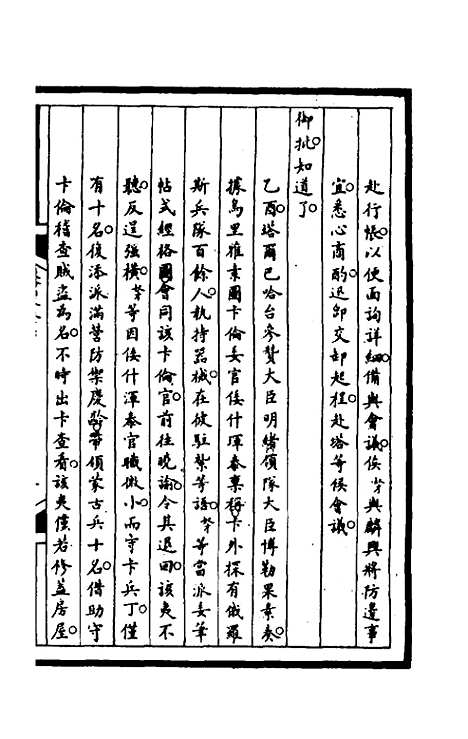 赴行帳。以便面詢詳細。備與會議。俟奴才與麟興將防邊事
宜。悉心商酌。迅卽交卸起程。赴塔等候會議。
御批。知道了。
乙酉。塔爾巴哈台參贊大臣明緒領隊大臣博勒果素奏。
據烏里雅素圖卡倫委官佞什渾泰稟稱。卡外探有俄羅
斯兵隊百餘人。執持器械。在彼駐紮等語。奴才等當派委筆
帖式經格圖會同該卡倫官。前往曉諭。令其退回。該夷不
聽。反逞強橫。奴才等因佞什渾泰官職微小。而守卡兵丁。僅
有十名。復添派滿營防禦慶齡帶領蒙古兵十名。借助守
卡倫稽查賊盜為名。不時出卡查看。該夷僅若修蓋房屋。